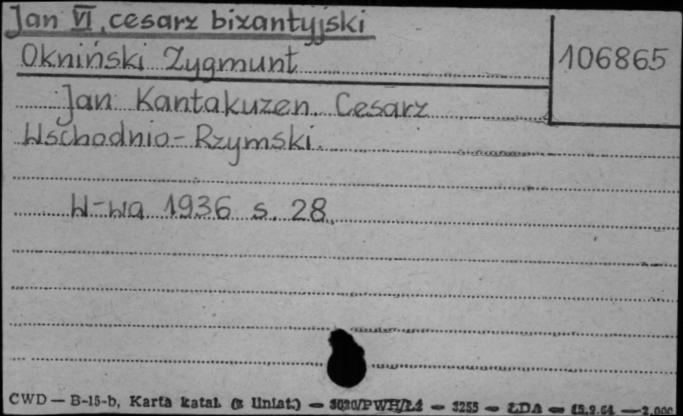 Jan VI, cesarz bizantyjski
Okniński Zygmunt
106865
Jan Kantakuzen. Cesarz
Wschodnio-Rzymski.
W-wa 1936 s. 28
CWD — B-15-b, Karta katal. (z liniat.) — 3255 — ŁDA — 2.000